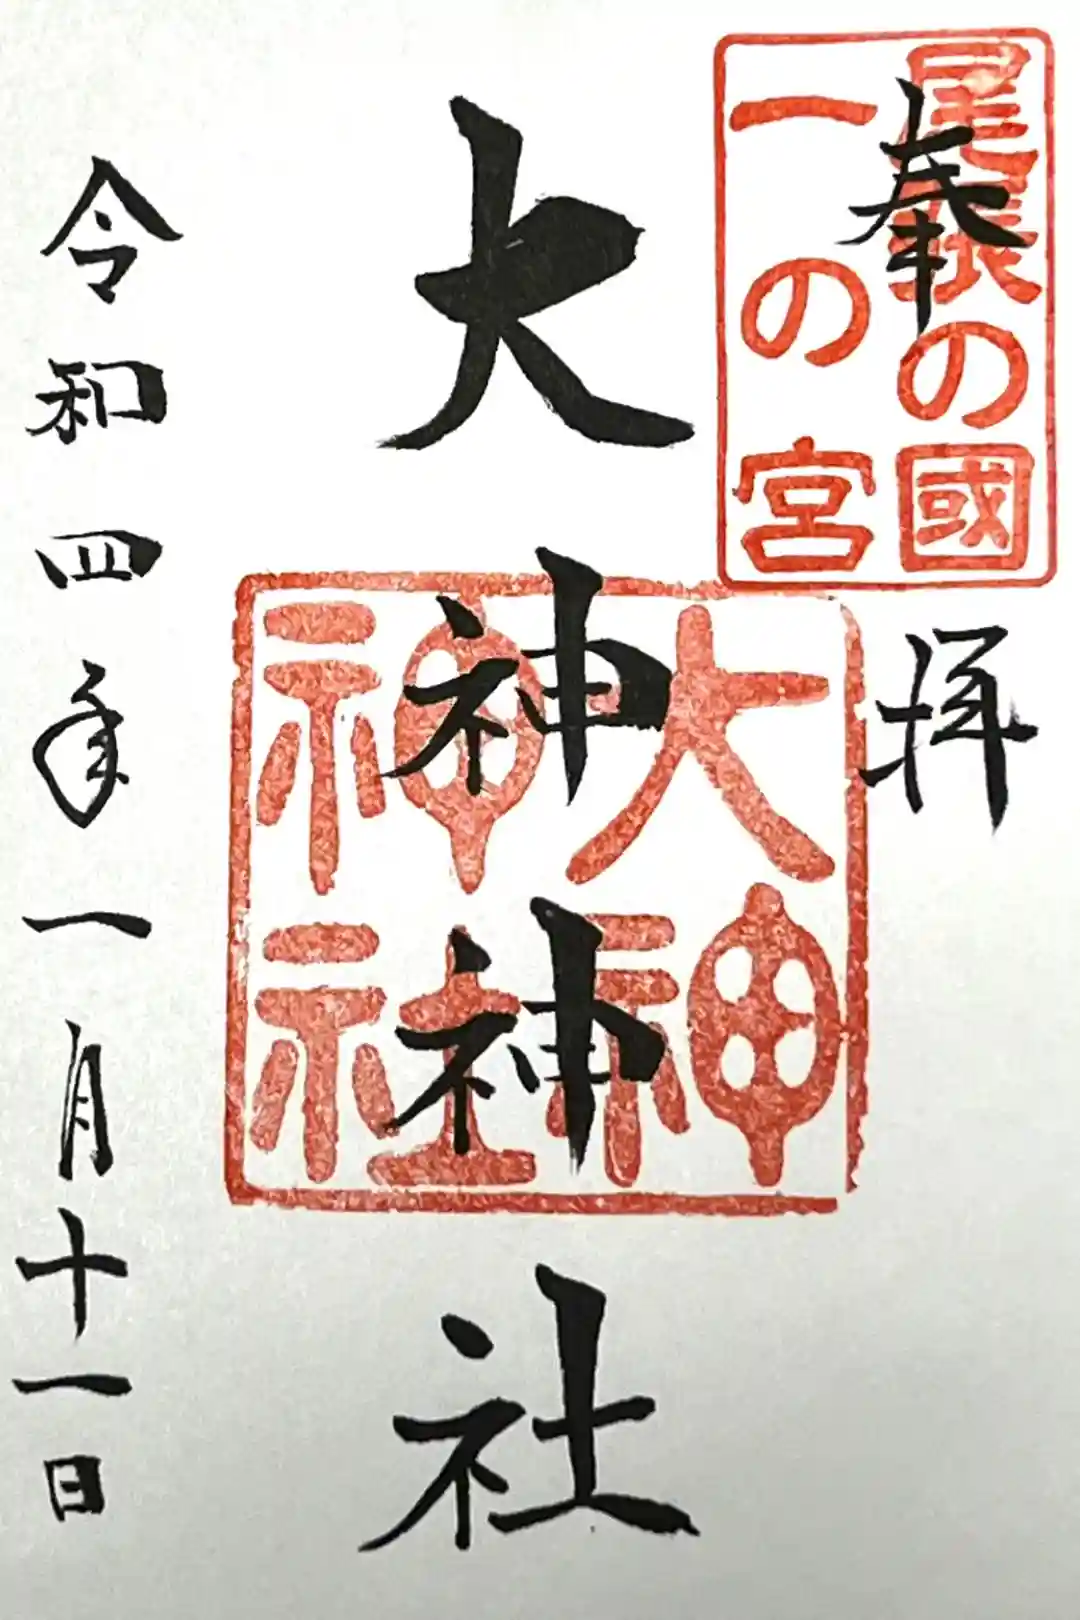 尾張の國
一の宮
奉拝
大神神社
大神
神社
令和四年一月十一日